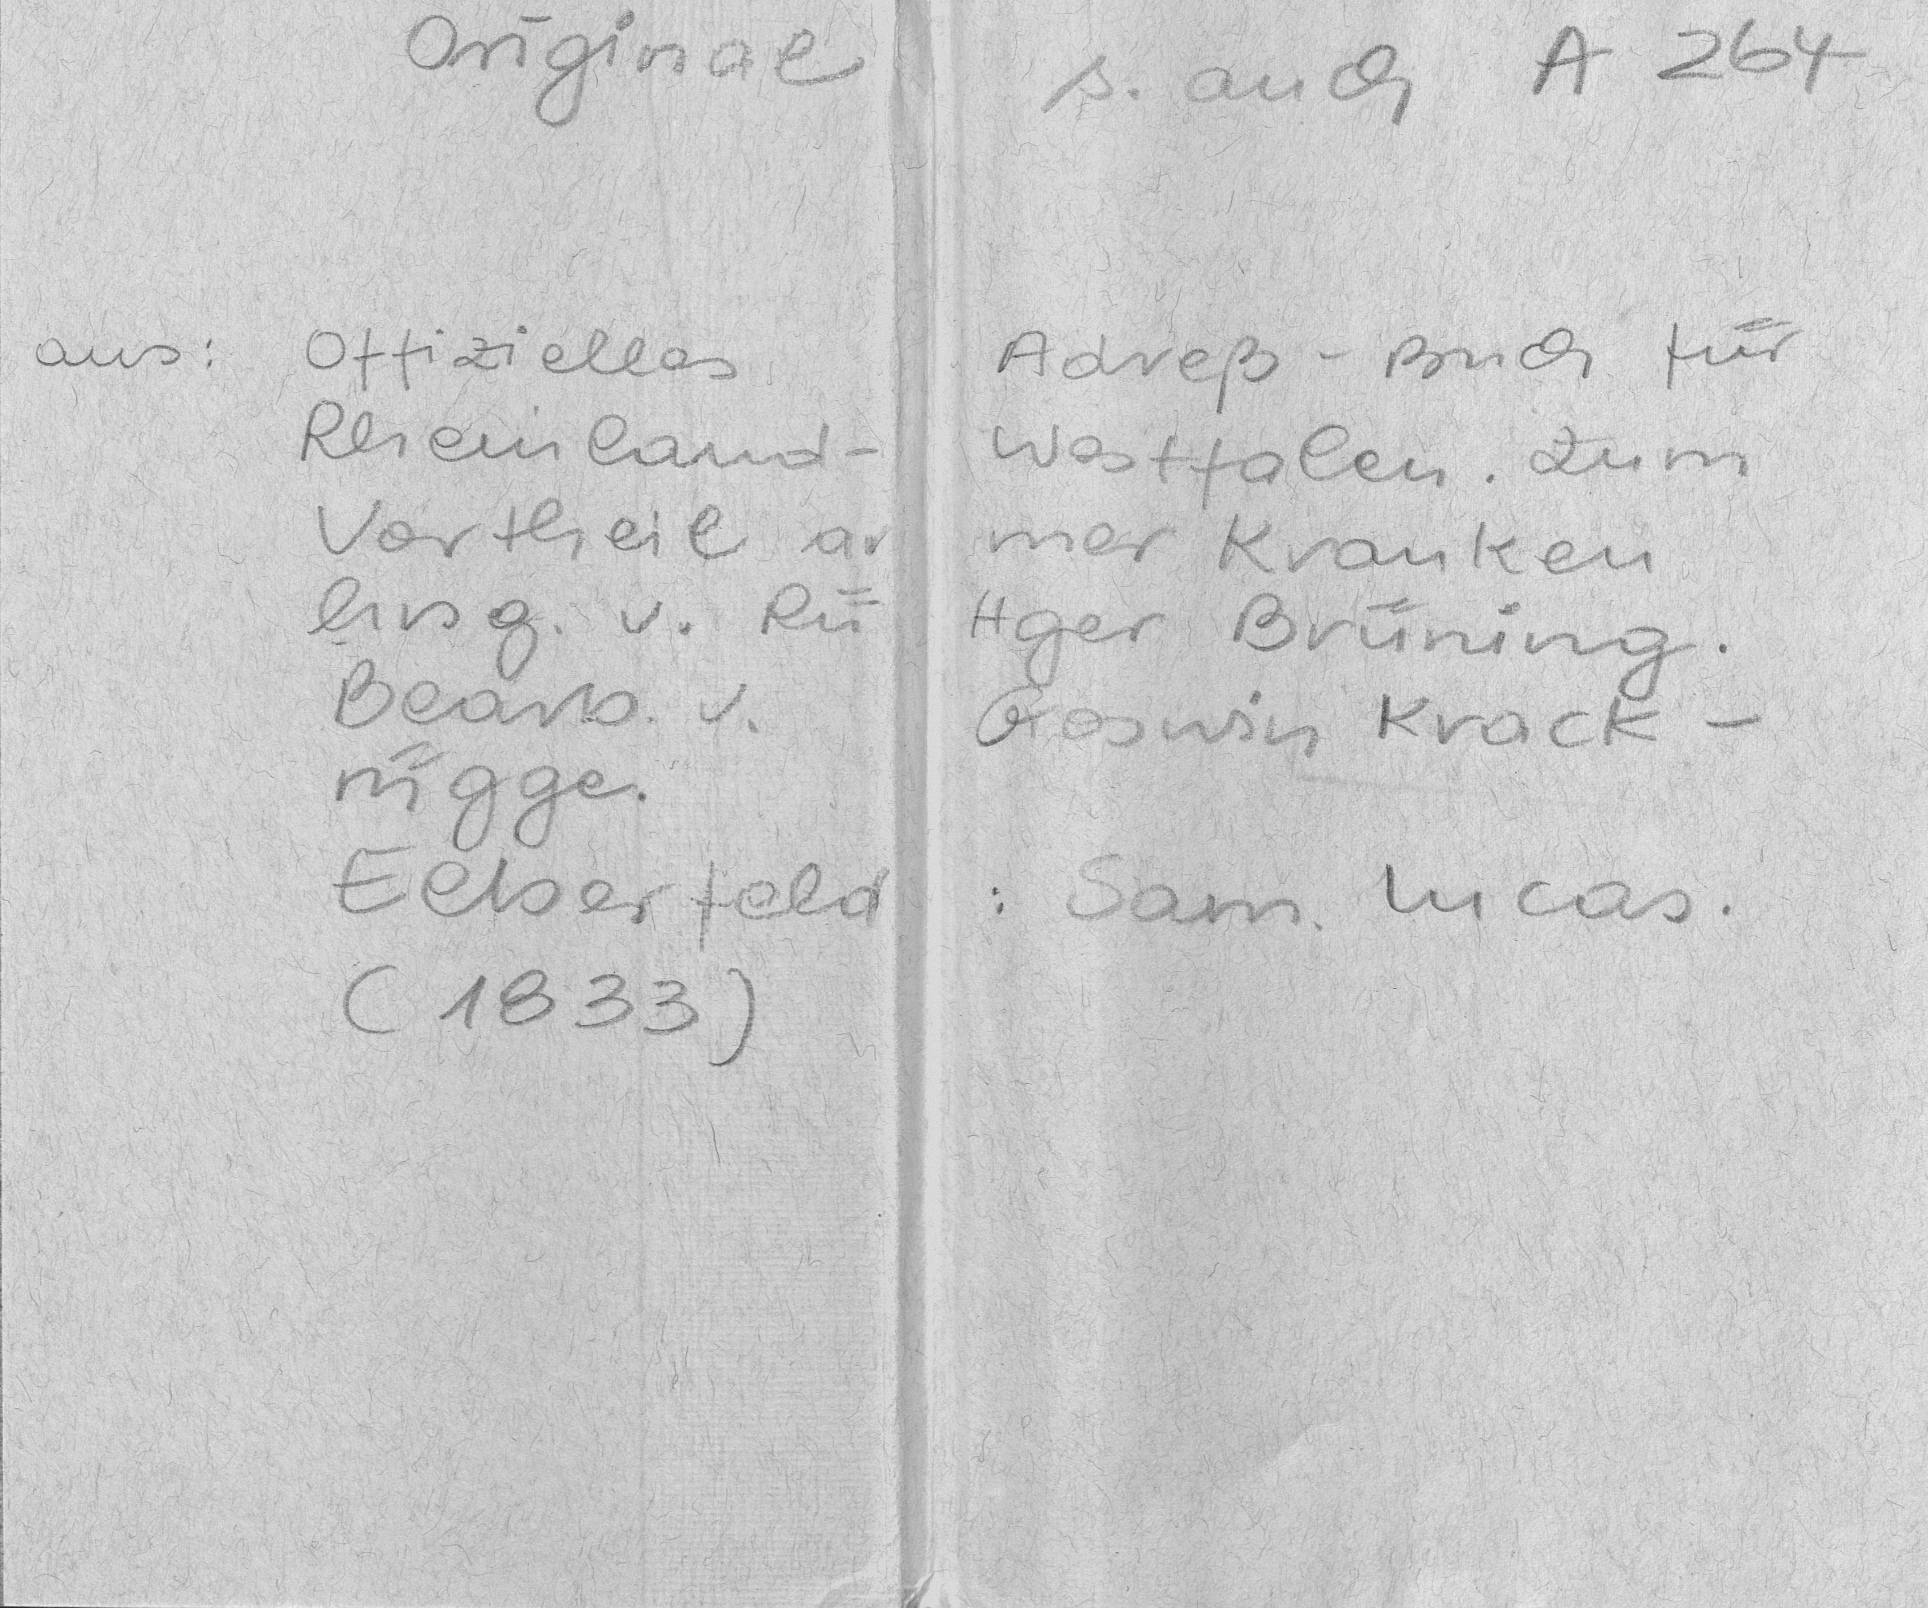 Original s. auch A 264
aus: Offizielles Adreß-Buch für
Rheinland-Westfalen. Zum
Vortheil armer Kranken
hrsg. v. Rüttger Brüning.
Bearb. v. Goswin Krack-
rügge.
Elberfeld: Sam. Lucas.
(1833)